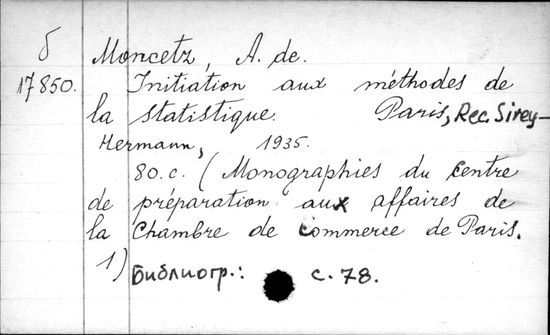 б Moncetz, A. de.
17850. Initiation aux méthodes de
la statistique. Paris, Rec. Sirey-
Hermann, 1935.
80. c. (Monographies du Centre
de préparation aux affaires de
la Chambre de Commerce de Paris.
1) Библиогр.: с. 78.